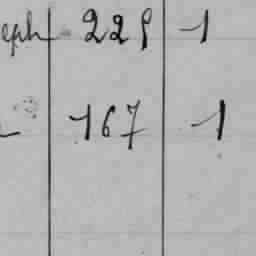 eph 229 1
167 1